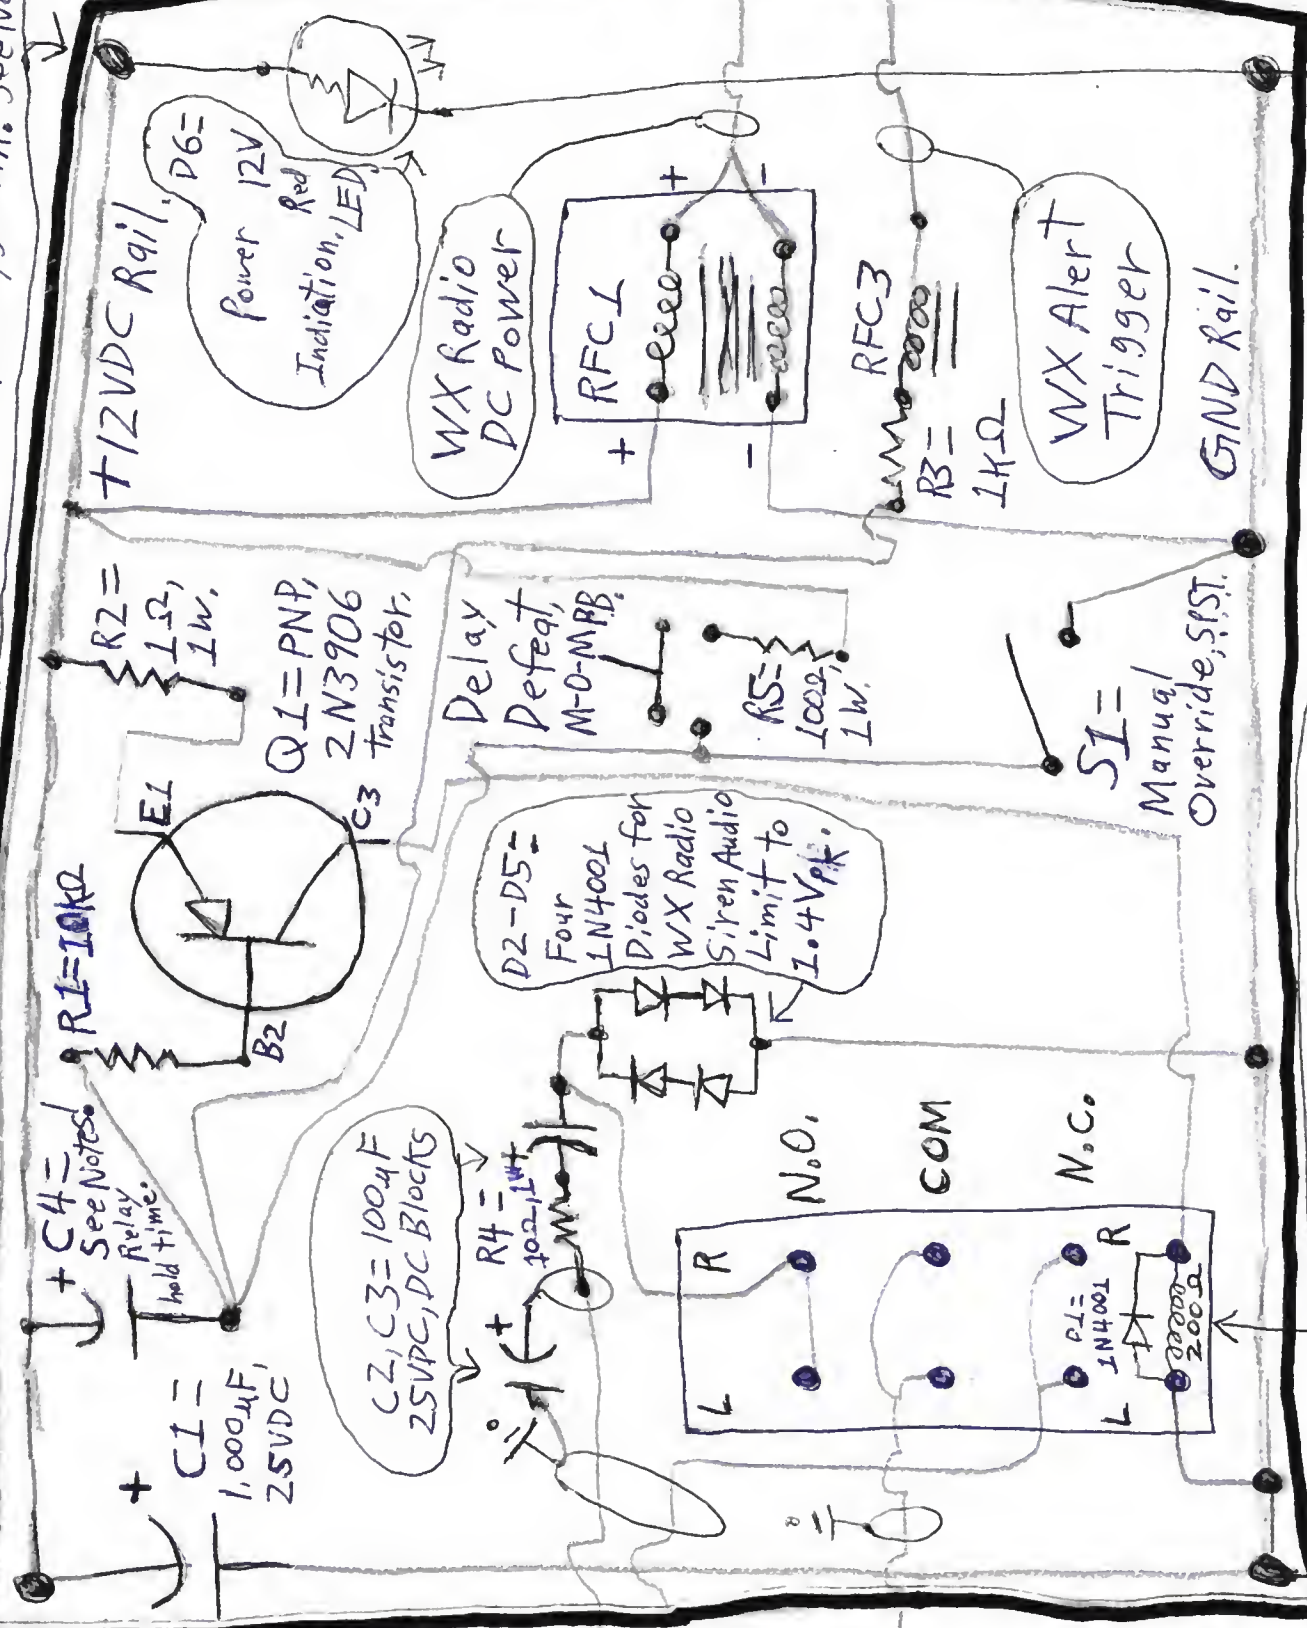 +12VDC Rail.
D6=
Power 12V
Red
Indiation. LED.
WX Radio
DC Power
RFC1
+
-
+
-
RFC3
R3=
1KΩ
WX Alert
Trigger
GND Rail.
R2=
1Ω,
1W.
Q1=PNP,
2N3906
transistor.
E1
C3
B2
R1=10KΩ
Delay
Defeat,
M-O-MPB.
R5=
100Ω,
1W.
S1=
Manual
Override, SPST.
D2-D5=
Four
1N4001
Diodes for
WX Radio
Siren Audio
Limit to
1.4Vpk.
+ C4=
See Notes!
Relay
hold time.
+
C1=
1,000µF,
25VDC
C2, C3=100µF
25VDC, DC Blocks
R4=
+
N.O.
COM
N.C.
L
R
D1=
1N4001
L
R
200Ω